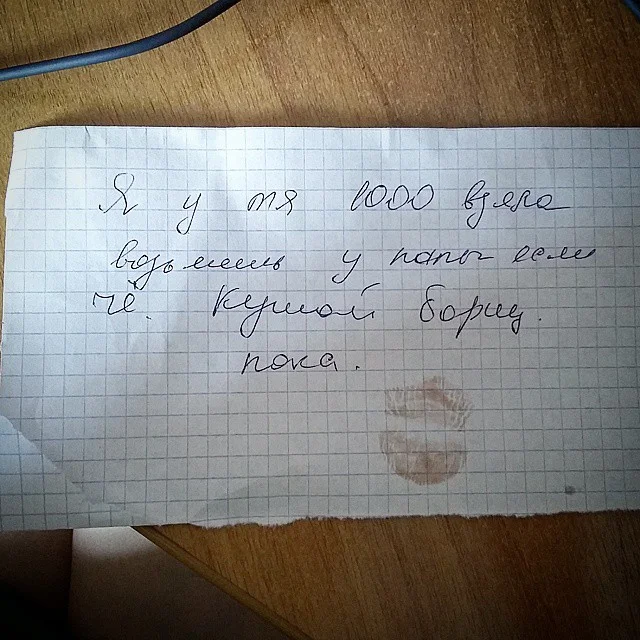 Я у тя 1000 взяла
возьмешь у папы если
чё. Кушай борщ.
пока.